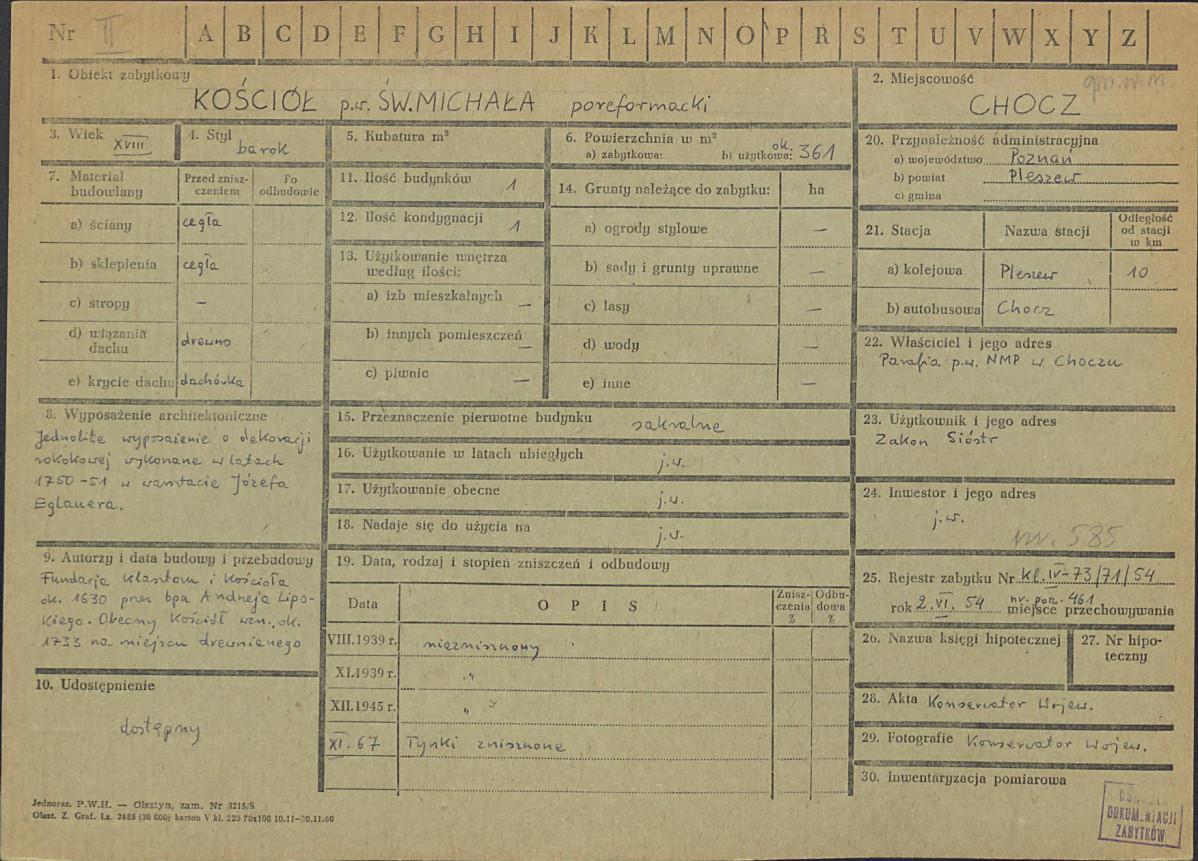 Nr II A B C D E F G H I J K L M N O P R S T U V W X Y Z
1. Obiekt zabytkowy
KOŚCIÓŁ p.w. ŚW. MICHAŁA poreformacki
2. Miejscowość
CHOCZ
3. Wiek
XVIII
4. Styl
barok
5. Kubatura m³
6. Powierzchnia w m²
a) zabytkowa: b) użytkowa: ok. 361
7. Materiał
budowlany
Przed znisz-
czeniem
Po
odbudowie
a) ściany cegła
b) sklepienia cegła
c) stropy —
d) wiązania
dachu drewno
e) krycie dachu dachówka
8. Wyposażenie architektoniczne
Jednolite wyposażenie o dekoracji
rokokowej wykonane w latach
1750-51 w warsztacie Józefa
Eglauera.
9. Autorzy i data budowy i przebudowy
Fundacja klasztoru i kościoła
ok. 1630 przez bpa Andrzeja Lips-
kiego. Obecny kościół wzn. ok.
1733 na miejscu drewnianego
10. Udostępnienie
dostępny
11. Ilość budynków 1
12. Ilość kondygnacji 1
13. Użytkowanie wnętrza
według ilości:
a) izb mieszkalnych —
b) innych pomieszczeń —
c) piwnic —
14. Grunty należące do zabytku: ha
a) ogrody stylowe —
b) sady i grunty uprawne —
c) lasy —
d) wody —
e) inne —
15. Przeznaczenie pierwotne budynku sakralne
16. Użytkowanie w latach ubiegłych j.w.
17. Użytkowanie obecne j.w.
18. Nadaje się do użycia na j.w.
19. Data, rodzaj i stopień zniszczeń i odbudowy
Data OPIS Znisz-
czenia
% Odbu-
dowa
%
VIII.1939 r. niezniszczony
XI.1939 r. "
XII.1945 r. "
XI.67 Tynki zniszczone
20. Przynależność administracyjna
a) województwo Poznań
b) powiat Pleszew
c) gmina
21. Stacja Nazwa stacji Odległość
od stacji
w km
a) kolejowa Pleszew 10
b) autobusowa Chocz
22. Właściciel i jego adres
Parafia p.w. NMP w Choczu
23. Użytkownik i jego adres
Zakon Sióstr
24. Inwestor i jego adres
j.w.
nr. 585
25. Rejestr zabytku Nr kl.IV-73/71/54
nr. poz. 461
rok 2.VI.54 miejsce przechowywania
26. Nazwa księgi hipotecznej
27. Nr hipo-
teczny
28. Akta Konserwator Wojew.
29. Fotografie Konserwator Wojew.
30. Inwentaryzacja pomiarowa
Jednoraz. P.W.H. — Olsztyn, zam. Nr 3215/S
Olszt. Z. Graf. Lz. 2485 (30 000) karton V kl. 220 70x100 10.11—30.11.60
DOKUMENTACJI
ZABYTKÓW